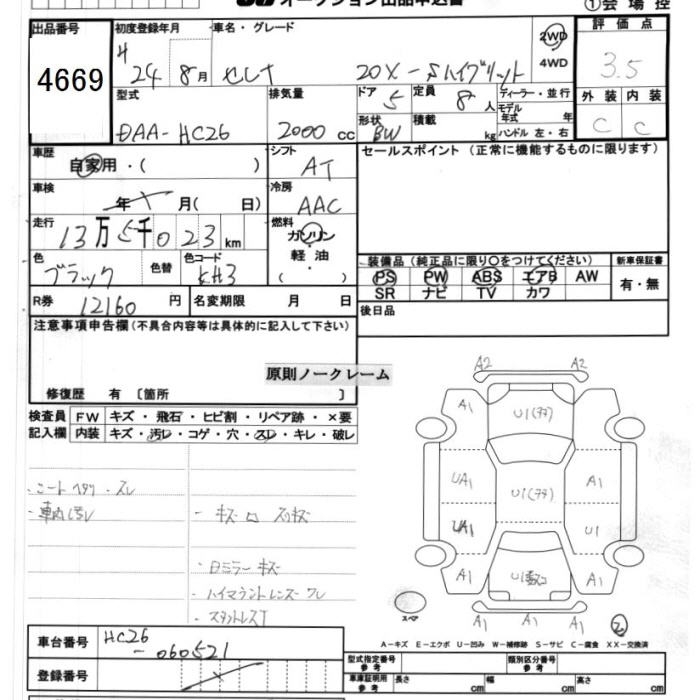 オークション出品申込書
①会場控
出品番号
4669
初度登録年月
H
24 8月
車名・グレード
セレナ 20X-Sハイブリット
2WD
4WD
評価点
3.5
型式
DAA-HC26
排気量
2000 cc
ドア
5
定員
8 人
ディーラー・並行
モデル
年式 年
形状
BW
積載
kg
ハンドル 左・右
外装 内装
C C
車歴
自家用・( )
シフト
AT
セールスポイント (正常に機能するものに限ります)
車検
年 月( 日)
冷房
AAC
走行
13万5千023km
燃料
ガソリン
軽油
( )
色
ブラック
色替
色コード
KH3
装備品 (純正品に限り○をつけてください)
新車保証書
PS PW ABS エアB AW
SR ナビ TV カワ
有・無
R券
12160 円
名変期限 月 日
後日品
注意事項申告欄 (不具合内容等は具体的に記入して下さい)
原則ノークレーム
修復歴 有 〔箇所 〕
検査員 FW キズ・飛石・ヒビ割・リペア跡・×要
記入欄 内装 キズ・汚レ・コゲ・穴・スレ・キレ・破レ
・シートヘタリ・スレ
・車内汚レ
- キズ 凹 スリキズ
・Dミラー キズ
・ハイマウントレンズワレ
A2 A2
A1 U1(テア) A1
UA1 U1(テア) A1
UA1 U1
A1 A1
A1 A1 A1
スペア
A-キズ E-エクボ U-凹み W-補修跡 S-サビ C-腐食 XX-交換済
車台番号
HC26
-060521
登録番号
型式指定番号
参考
類別区分番号
参考
車庫証明用
参考
長さ cm
幅 cm
高さ cm